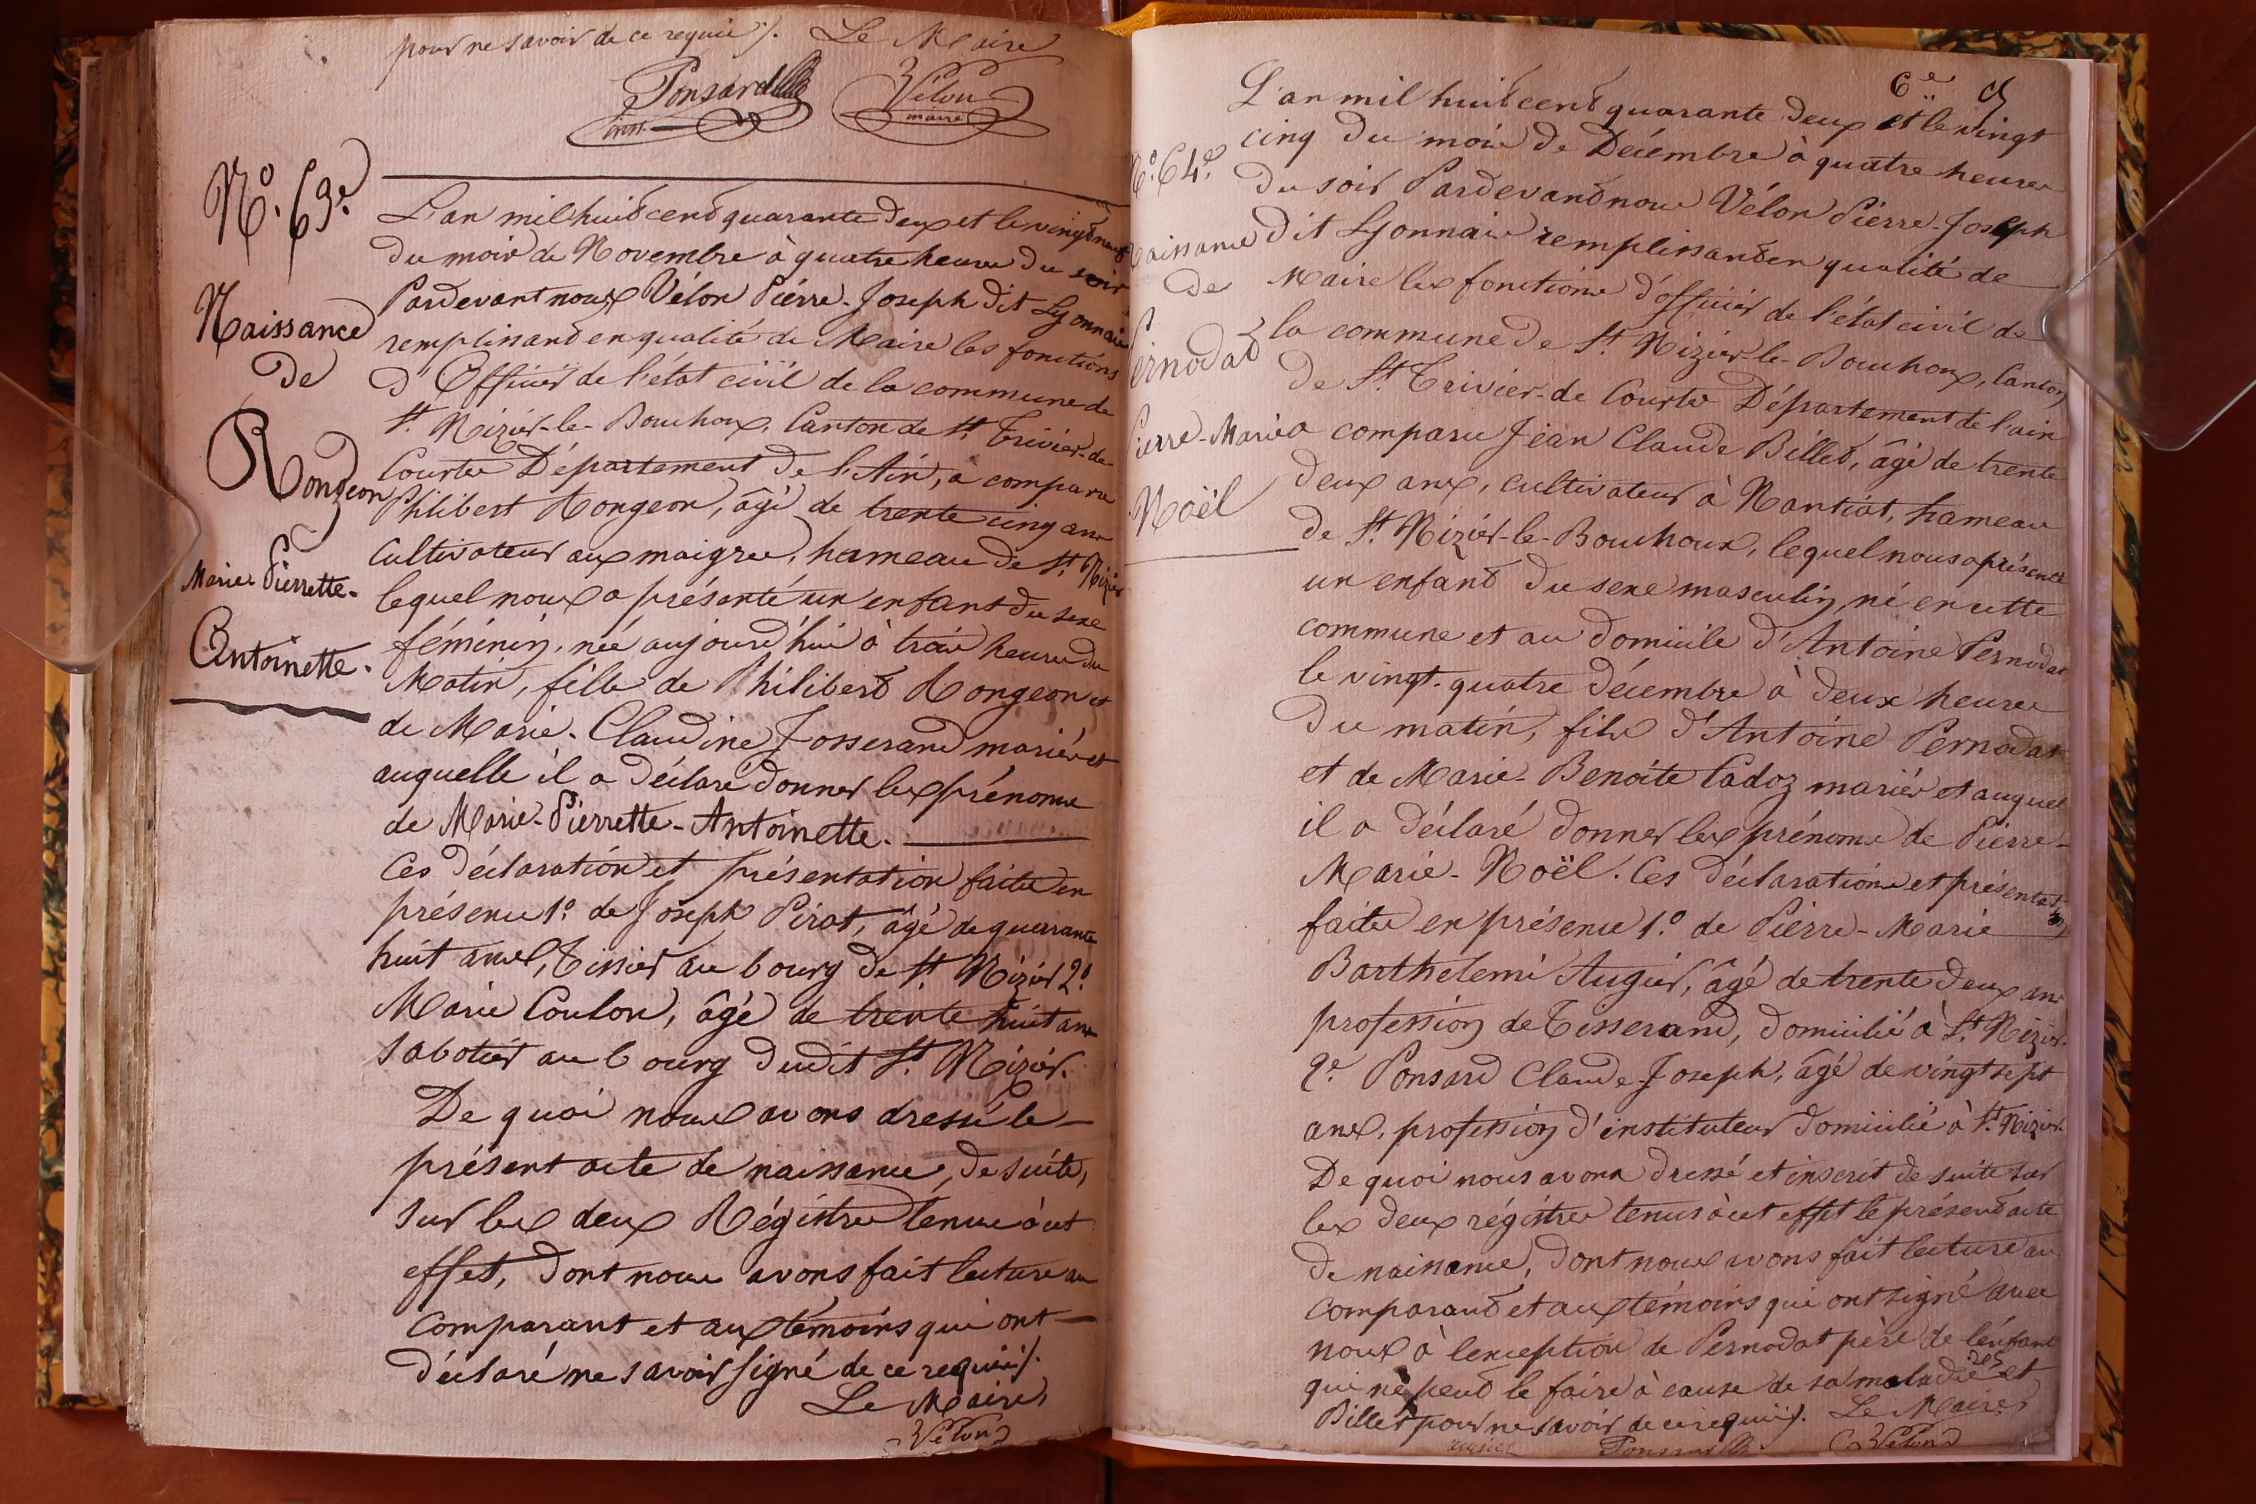 pour ne savoir de ce requis /. Le Maire
Ponsard
inst.
Vélon
maire
N.º 63.e
Naissance
de
Rongeon
Marie Pierrette-
Antoinette.
L'an mil huit cent quarante deux et le vingt neuf
du mois de Novembre à quatre heures du soir
Pardevant nous Vélon Pierre-Joseph dit Lyonnais
remplissant en qualité de Maire les fonctions
d'Officier de l'état civil de la commune de
St. Nizier-le-Bouchoux, Canton de St. Trivier-de-
Courtes Département de l'Ain, a comparu
Philibert Rongeon, âgé de trente cinq ans
Cultivateur aux maigres, hameau de St. Nizier
lequel nous a présenté un enfant du sexe
féminin, née aujourd'hui à trois heures du
Matin, fille de Philibert Rongeon et
de Marie-Claudine Josserand mariés et
auquelle il a déclaré donner les prénoms
de Marie-Pierrette-Antoinette.
Ces déclaration et présentation faites en
présence 1.º de Joseph Pirat, âgé de quarante
huit ans, Tissier au bourg de St. Nizier 2.º
Marie Coulon, âgé de trente huit ans
sabotier au bourg dudit St. Nizier.
De quoi nous avons dressé le
présent acte de naissance, de suite,
sur les deux Régistres tenus à cet
effet, dont nous avons fait lecture au
Comparant et aux témoins qui ont
déclaré ne savoir signé de ce requis /.
Le Maire
Vélon
6.e
N.º 64.e
Naissance
de
Pernodat
Pierre-Marie
Noël
L'an mil huit cent quarante deux et le vingt
cinq du mois de Décembre à quatre heures
du soir Pardevant nous Vélon Pierre-Joseph
dit Lyonnais remplissant en qualité de
Maire les fonctions d'officier de l'état civil de
la commune de St. Nizier-le-Bouchoux, Canton
de St. Trivier-de Courtes Département de l'ain
a comparu Jean Claude Billet, âgé de trente
deux ans, cultivateur à Nantiat, hameau
de St. Nizier-le-Bouchoux, lequel nous a présenté
un enfant du sexe masculin né en cette
commune et au domicile d'Antoine Pernodat
le vingt-quatre décembre à deux heures
du matin, fils d'Antoine Pernodat
et de Marie-Benoite Cadoz mariés et auquel
il a déclaré donner les prénoms de Pierre-
Marie-Noël. Ces déclarations et présentat.on
faites en présence 1.º de Pierre-Marie
Barthélemi Augier, âgé de trente deux ans
profession de Tisserand, domicilié à St. Nizier.
2.e Ponsard Claude-Joseph, âgé de vingt sept
ans, profession d'instituteur domicilié à St. Nizier.
De quoi nous avons dressé et inscrit de suite sur
les deux régistres tenus à cet effet le présent acte
de naissance, dont nous avons fait lecture au
comparant et aux témoins qui ont signé avec
nous à l'exception de Pernodat père de l'enfant
qui ne peut le faire à cause de sa maladie et
Billet pour ne savoir de ce requis /. Le Maire
Augier Ponsard Vélon